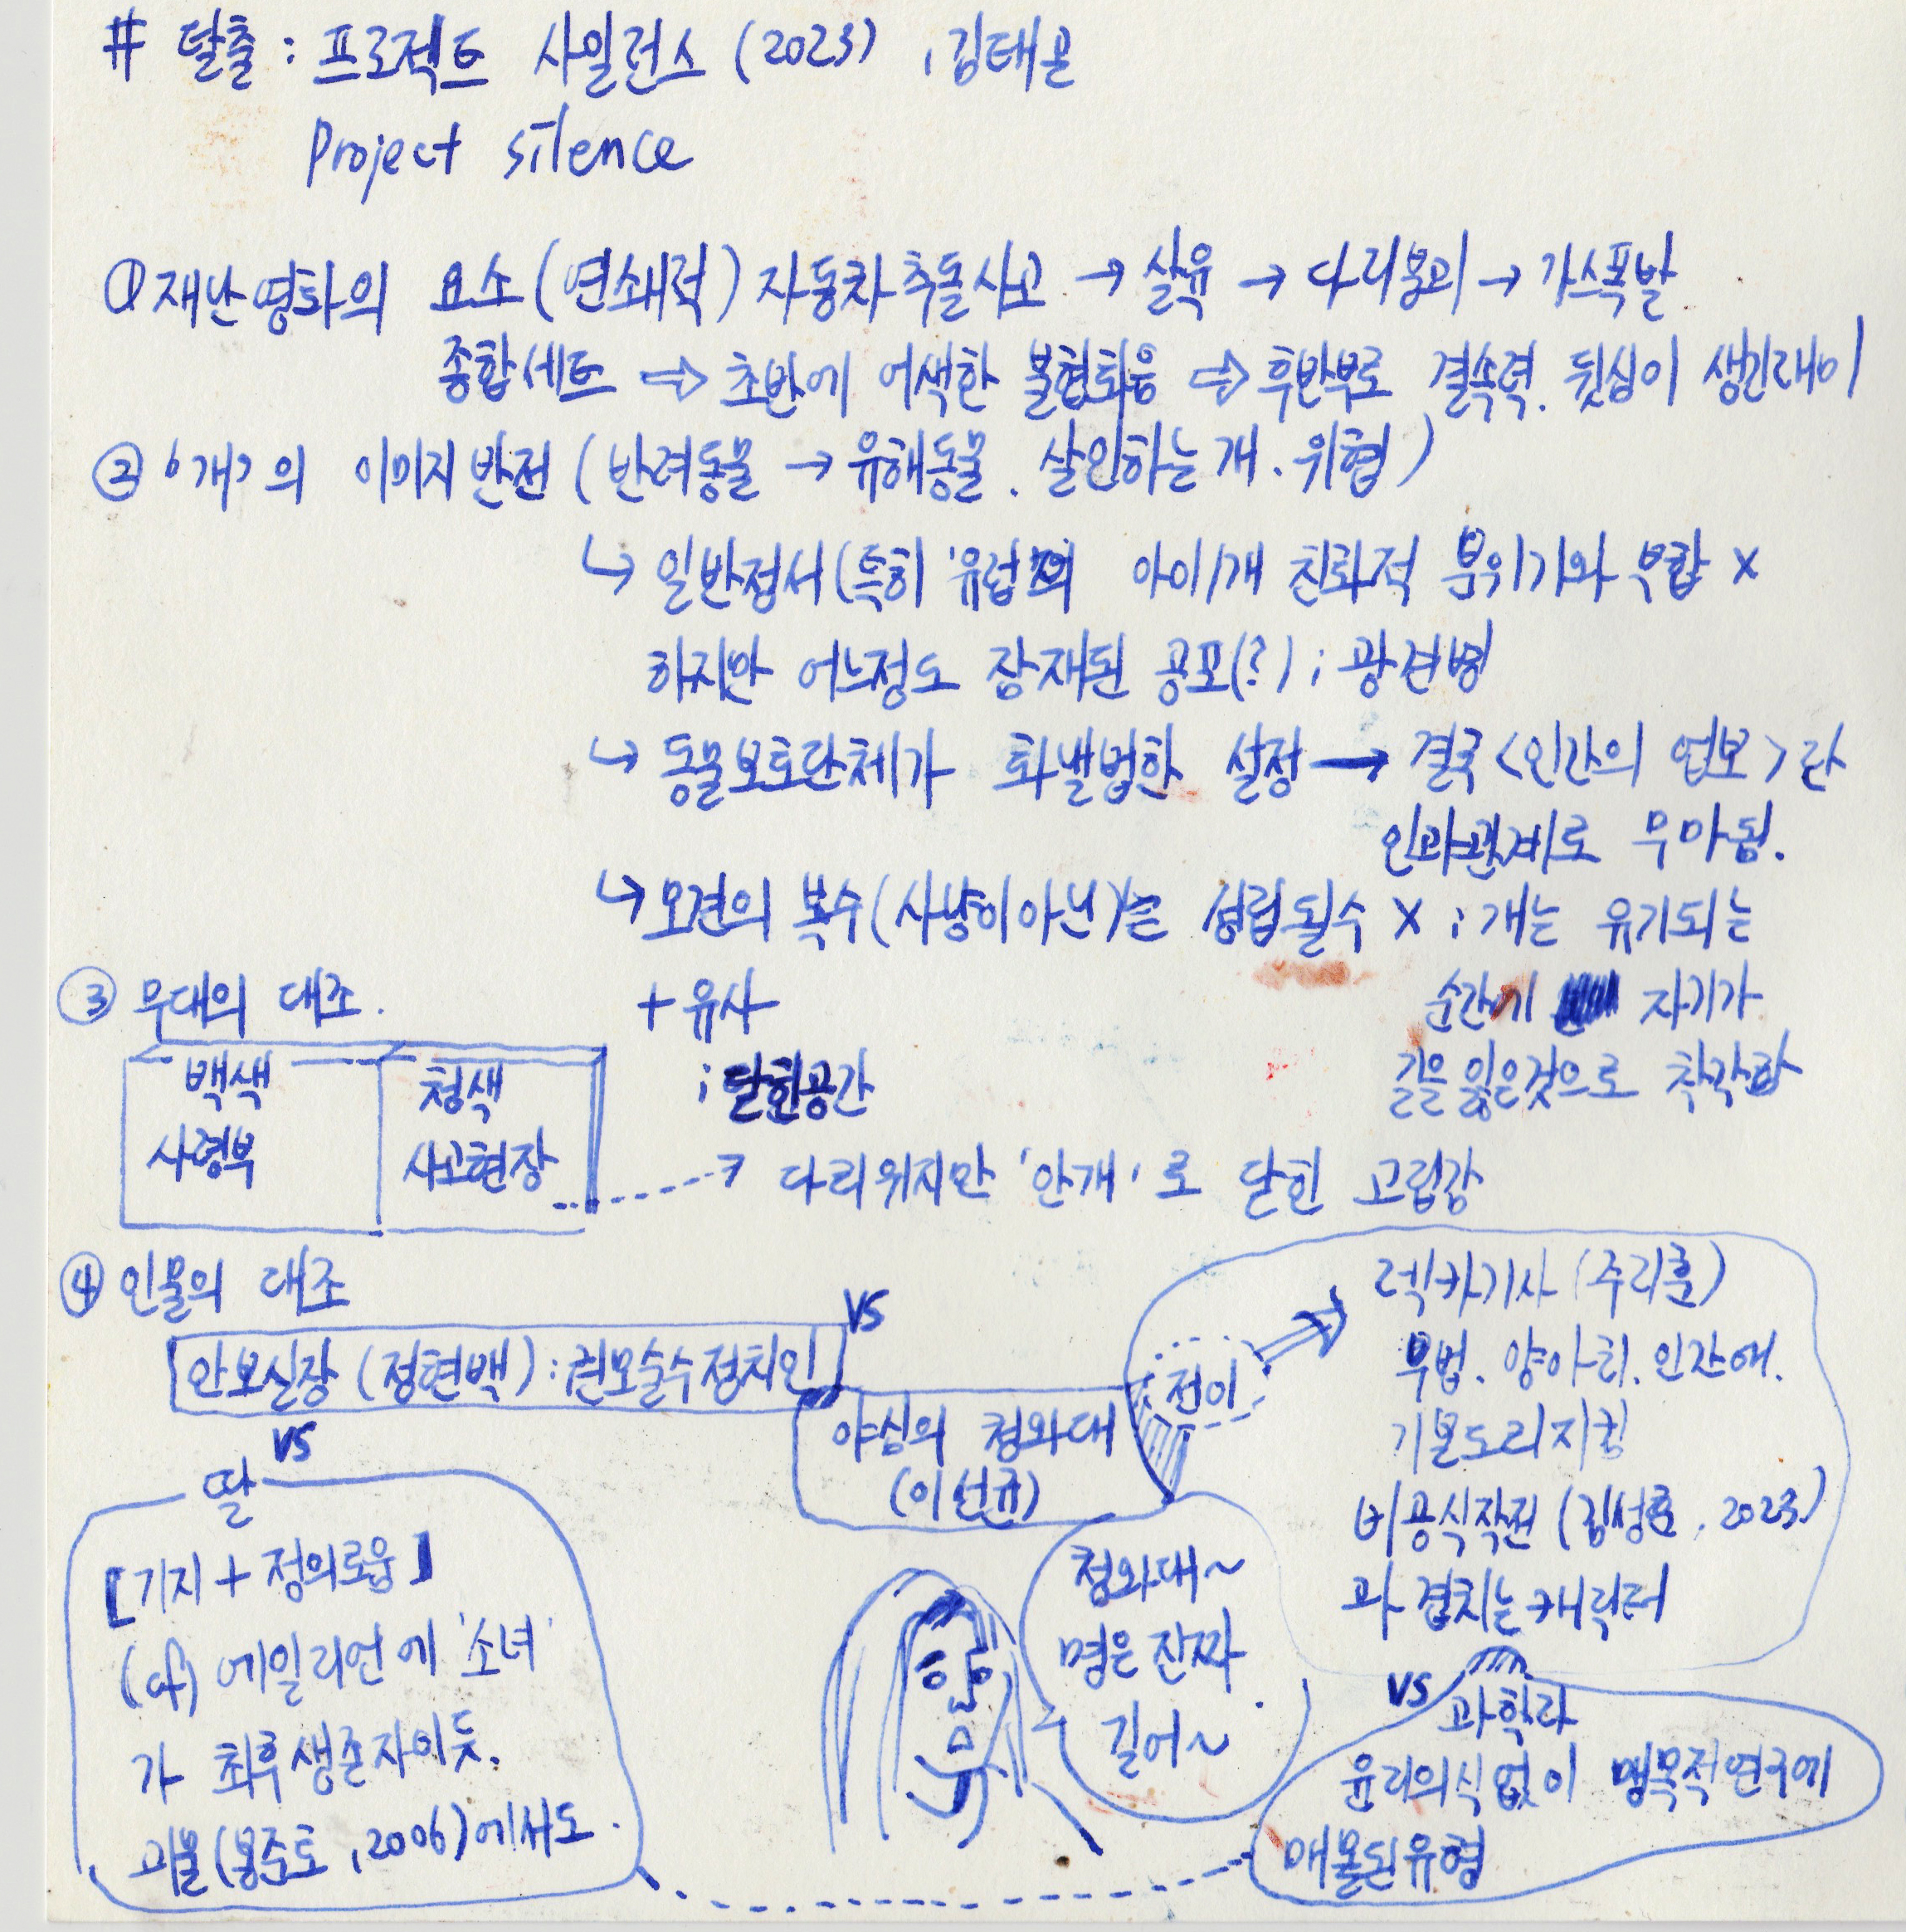 # 탈출 : 프로젝트 사일런스 (2023) , 김태곤
Project silence
① 재난영화의 요소 (연쇄적) 자동차추돌사고 → 살육 → 다리붕괴 → 가스폭발
종합세트 ⇨ 초반에 어색한 불협화음 ⇨ 후반부로 결속력. 뒷심이 생긴래이
② '개'의 이미지 반전 (반려동물 → 유해동물. 살인하는개. 위협)
↳ 일반정서 (특히 '유럽'의 아이/개 친화적 분위기와 부합 x
하지만 어느정도 잠재된 공포(?) ; 광견병
↳ 동물보호단체가 화낼법한 설정 → 결국 <인간의 업보>란
인과관계로 무마됨.
↳ 오견의 복수(사냥이아닌)는 성립될수 X ; 개는 유기되는
순간에 자기가
길을 잃은것으로 착각함
③ 무대의 대조. + 유사
; 닫힌공간
백색 청색
사령부 사고현장
다리위지만 '안개'로 닫힌 고립감
④ 인물의 대조
안보실장 (정현백) : 권모술수정치인
VS
야심의 청와대
(이선균)
전이 ⇒
렉카기사 (주지훈)
무법. 양아치. 인간애.
기본도리지킴
비공식작전 (김성훈, 2023)
과 겹치는 캐릭터
VS
딸
[기지 + 정의로움]
(cf) 에일리언에 '소녀'
가 최후생존자이듯.
괴물 (봉준호, 2006)에서도.
청와대~
명은 진짜
길어~
VS
과학자
윤리의식없이 맹목적연구에
매몰된유형